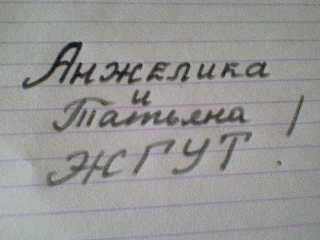 Анжелика
и
Татьяна
ЖГУТ!